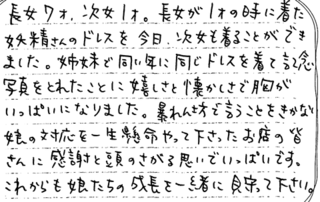 長女7才、次女1才。長女が1才の時に着た
妖精さんのドレスを今日、次女も着ることができ
ました。姉妹で同い年に同じドレスを着て記念
写真をとれたことに嬉しさと懐かしさで胸が
いっぱいになりました。暴れん坊で言うことをきかない
娘の対応を一生懸命やって下さったお店の皆
さんに感謝と頭のさがる思いでいっぱいです。
これからも娘たちの成長を一緒に見守って下さい。